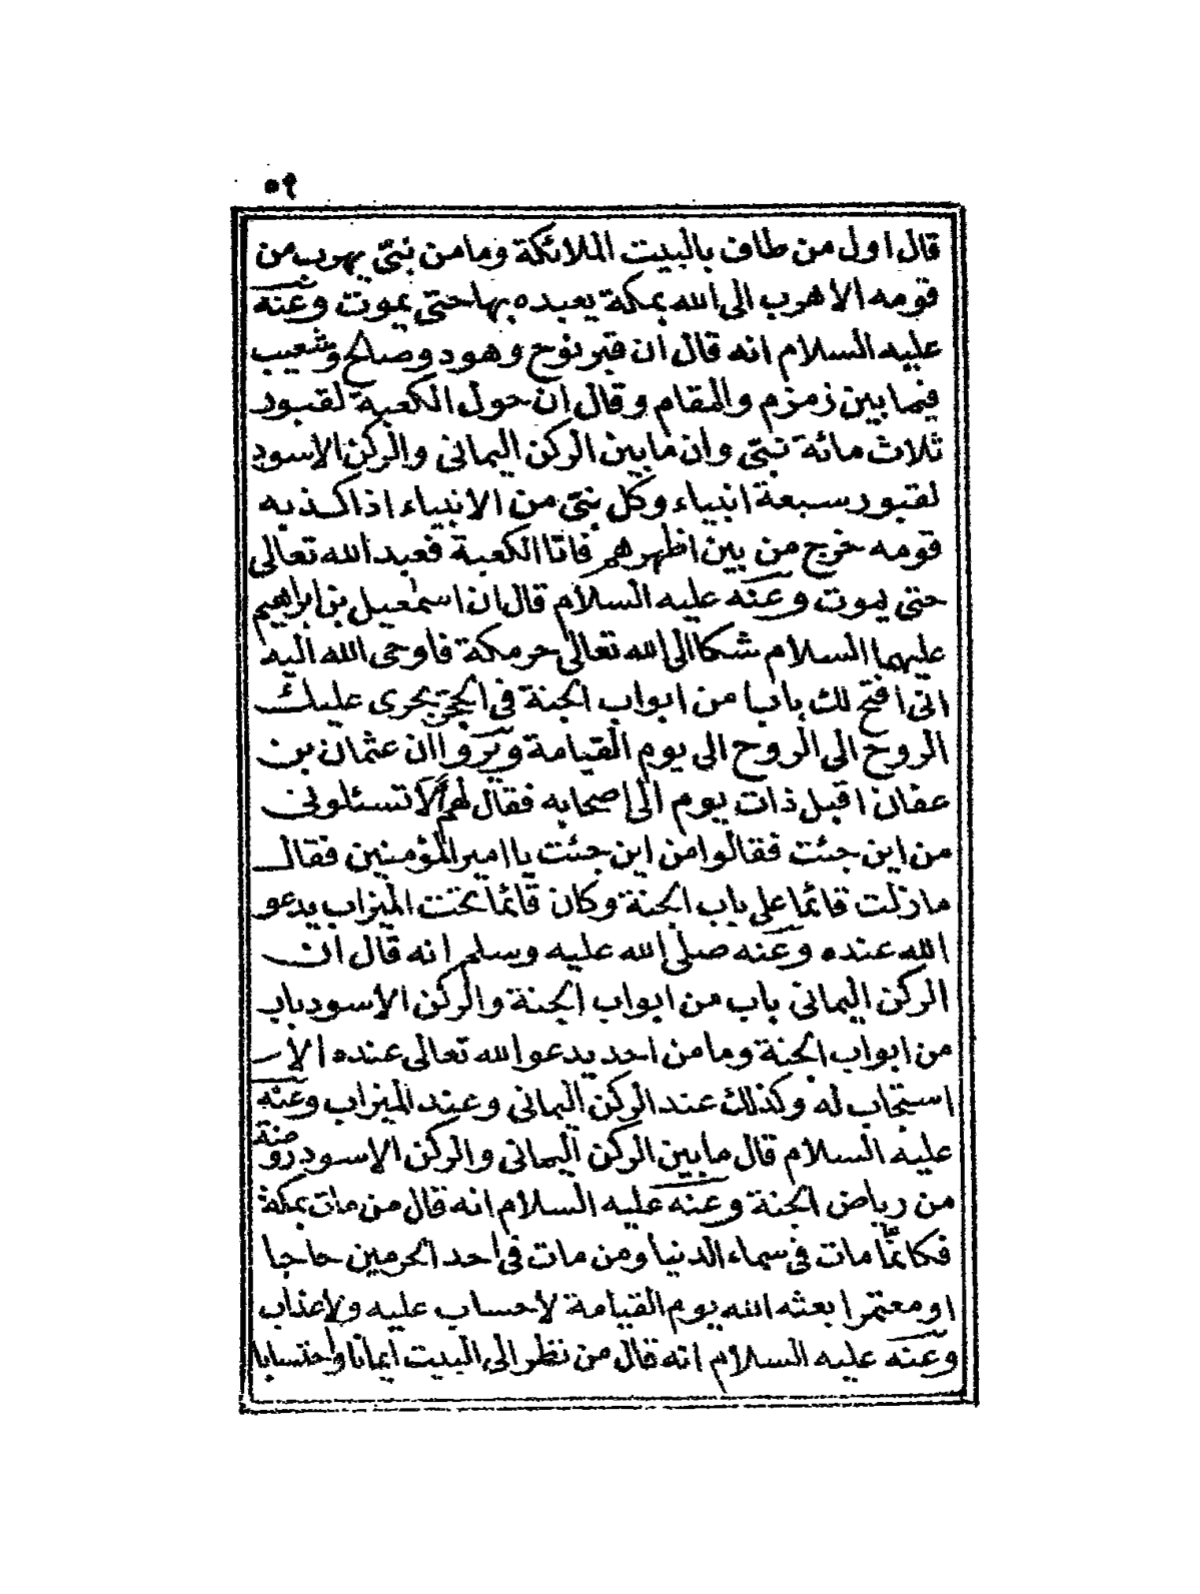 ٥٩
قال اول من طاف بالبيت الملائكة وما من نبتى يهرب من
قومه الا هرب الى الله بمكة يعبده بها حتى يموت وعنه
عليه السلام انه قال ان قبر نوح وهود وصالح وشعيب
فيما بين زمزم والمقام وقال ان حول الكعبة لقبور
ثلاث مائة نبتى وان ما بين الركن اليمانى والركن الاسود
لقبور سبعة انبياء وكل نبتى من الانبياء اذا كذبه
قومه خرج من بين اظهرهم فاتا الكعبة فعبد الله تعالى
حتى يموت وعنه عليه السلام قال ان اسمعيل بن ابراهيم
عليهما السلام شكا الى الله تعالى حر مكة فاوحى الله اليه
انى افتح لك بابا من ابواب الجنة فى الحجر يجرى عليك
الروح الى الروح الى يوم القيامة ويروا ان عثمان بن
عفان اقبل ذات يوم الى اصحابه فقال لهم ألا تسئلونى
من اين جئت فقالوا من اين جئت يا امير المؤمنين فقال
ما زلت قائما على باب الجنة وكان قائما تحت الميزاب يدعو
الله عنده وعنه صلى الله عليه وسلم انه قال ان
الركن اليمانى باب من ابواب الجنة والركن الاسود باب
من ابواب الجنة وما من احد يدعو الله تعالى عنده الا
استجاب له وكذلك عند الركن اليمانى وعند الميزاب وعنه
عليه السلام قال ما بين الركن اليمانى والركن الاسود روضة
من رياض الجنة وعنه عليه السلام انه قال من مات بمكة
فكانما مات فى سماء الدنيا ومن مات فى احد الحرمين حاجا
او معتمرا بعثه الله يوم القيامة لا حساب عليه ولا عذاب
وعنه عليه السلام انه قال من نظر الى البيت ايمانا واحتسابا